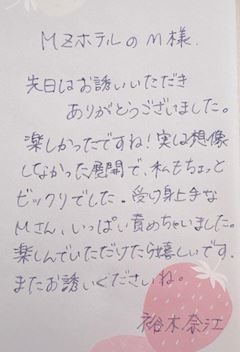 MZホテルのM様.
先日はお誘いいただき
ありがとうございました。
楽しかったですね!実は想像
しなかった展開で、私もちょっと
ビックリでした。受け身上手な
Mさん、いっぱい責めちゃいました。
楽しんでいただけたら嬉しいです。
またお誘いくださいね。
裕木奈江